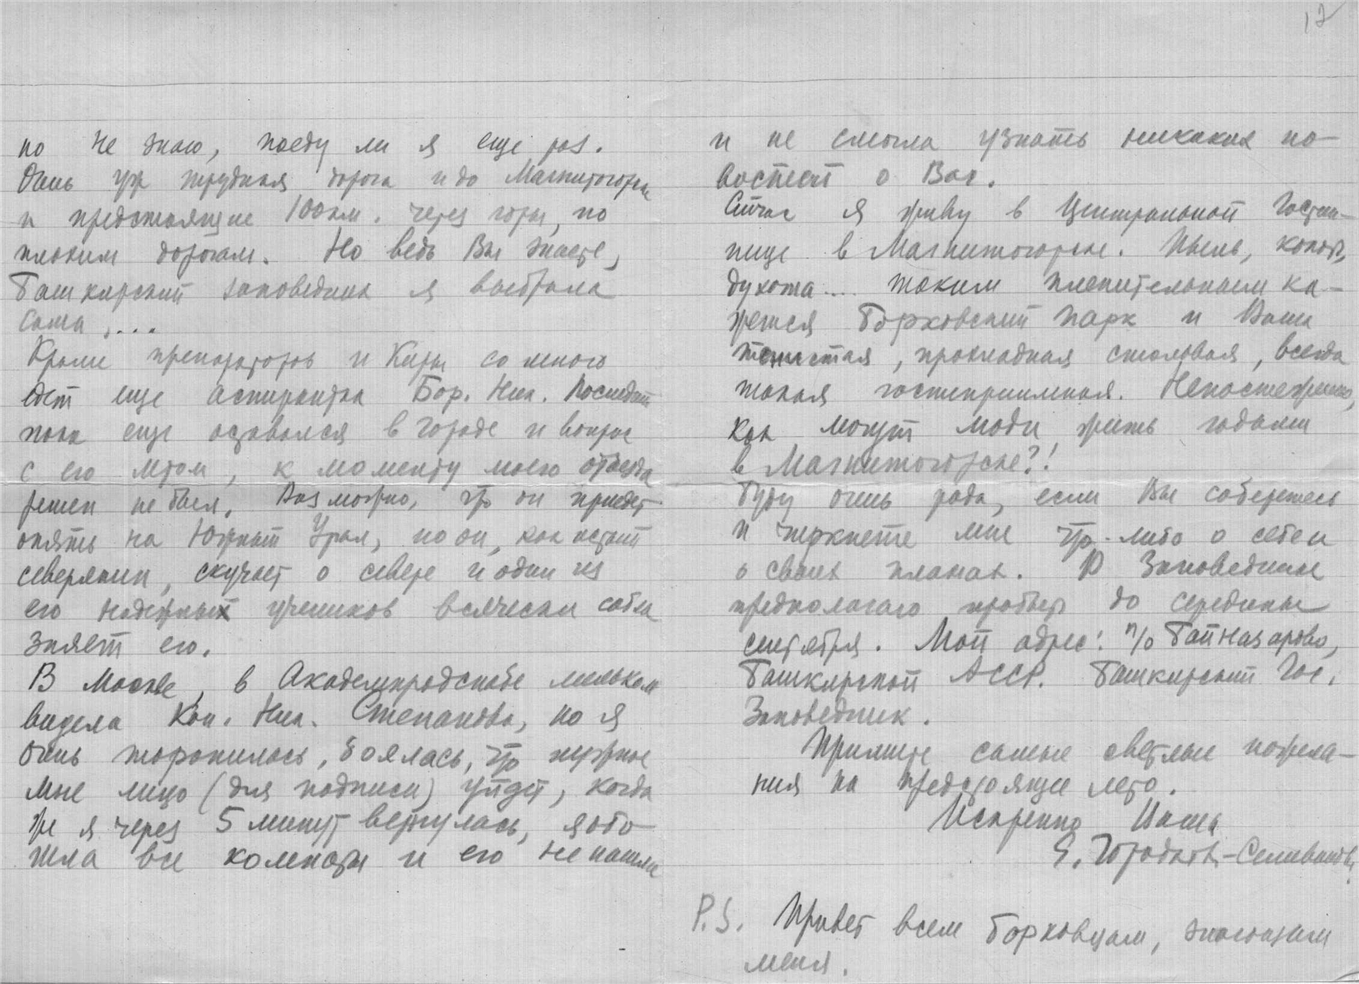 12
но не знаю, поеду ли я еще раз.
Очень уж трудная дорога и до Магнитогорска
и предстоящие 100 км. через горы, по
плохим дорогам. Но ведь Вы знаете,
Башкирский заповедник я выбрала
сама,...
Кроме препаратов и Киры со мною
едет еще аспирантка Бор. Ник. Последний
пока еще оставался в городе и вопрос
с его летом, к моменту моего отъезда
решен не был. Возможно, что он приедет
опять на Южный Урал, но он, как истый
северянин, скучает о севере и один из
его надежных учеников всячески собла
зняет его.
В Москве, в Академпродснабе мельком
видела Кон. Ник. Степанова, но я
очень торопилась, боялась, что нужное
мне лицо (для подписи) уйдет, когда
же я через 5 минут вернулась, я обо
шла все комнаты и его не нашла
и не смогла узнать никаких но-
востей о Вас.
Сейчас я живу в Центральной Гостин-
нице в Магнитогорске. Пыль, копоть,
духота... Таким пленительным ка-
жется Борковский парк и Ваша
тенистая, прохладная столовая, всегда
такая гостеприимная. Непостежимо,
как могут люди жить годами
в Магнитогорске?!
Буду очень рада, если Вы соберетесь
и черкнете мне что-либо о себе и
о своих планах. В Заповеднике
предполагаю пробыть до середины
сентября. Мой адрес: п/о Байназарово,
Башкирской АССР. Башкирский Гос.
Заповедник.
Примите самые светлые пожела-
ния на предстоящее лето.
Искренно Ваша
Е. Городкова-Селиванова
P.S. Привет всем борковцам, знающим
меня.